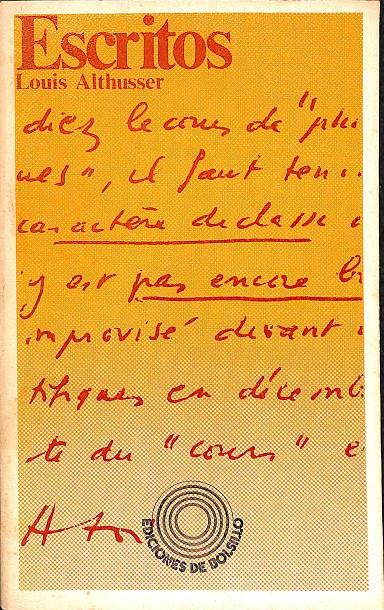 Escritos
Louis Althusser
diez le cours de "phi
ues", il faut teni
caractère de classe
y est pas encore b
improvisé devant
tifiques en décemb
te du "cours" e
EDICIONES DE BOLSILLO